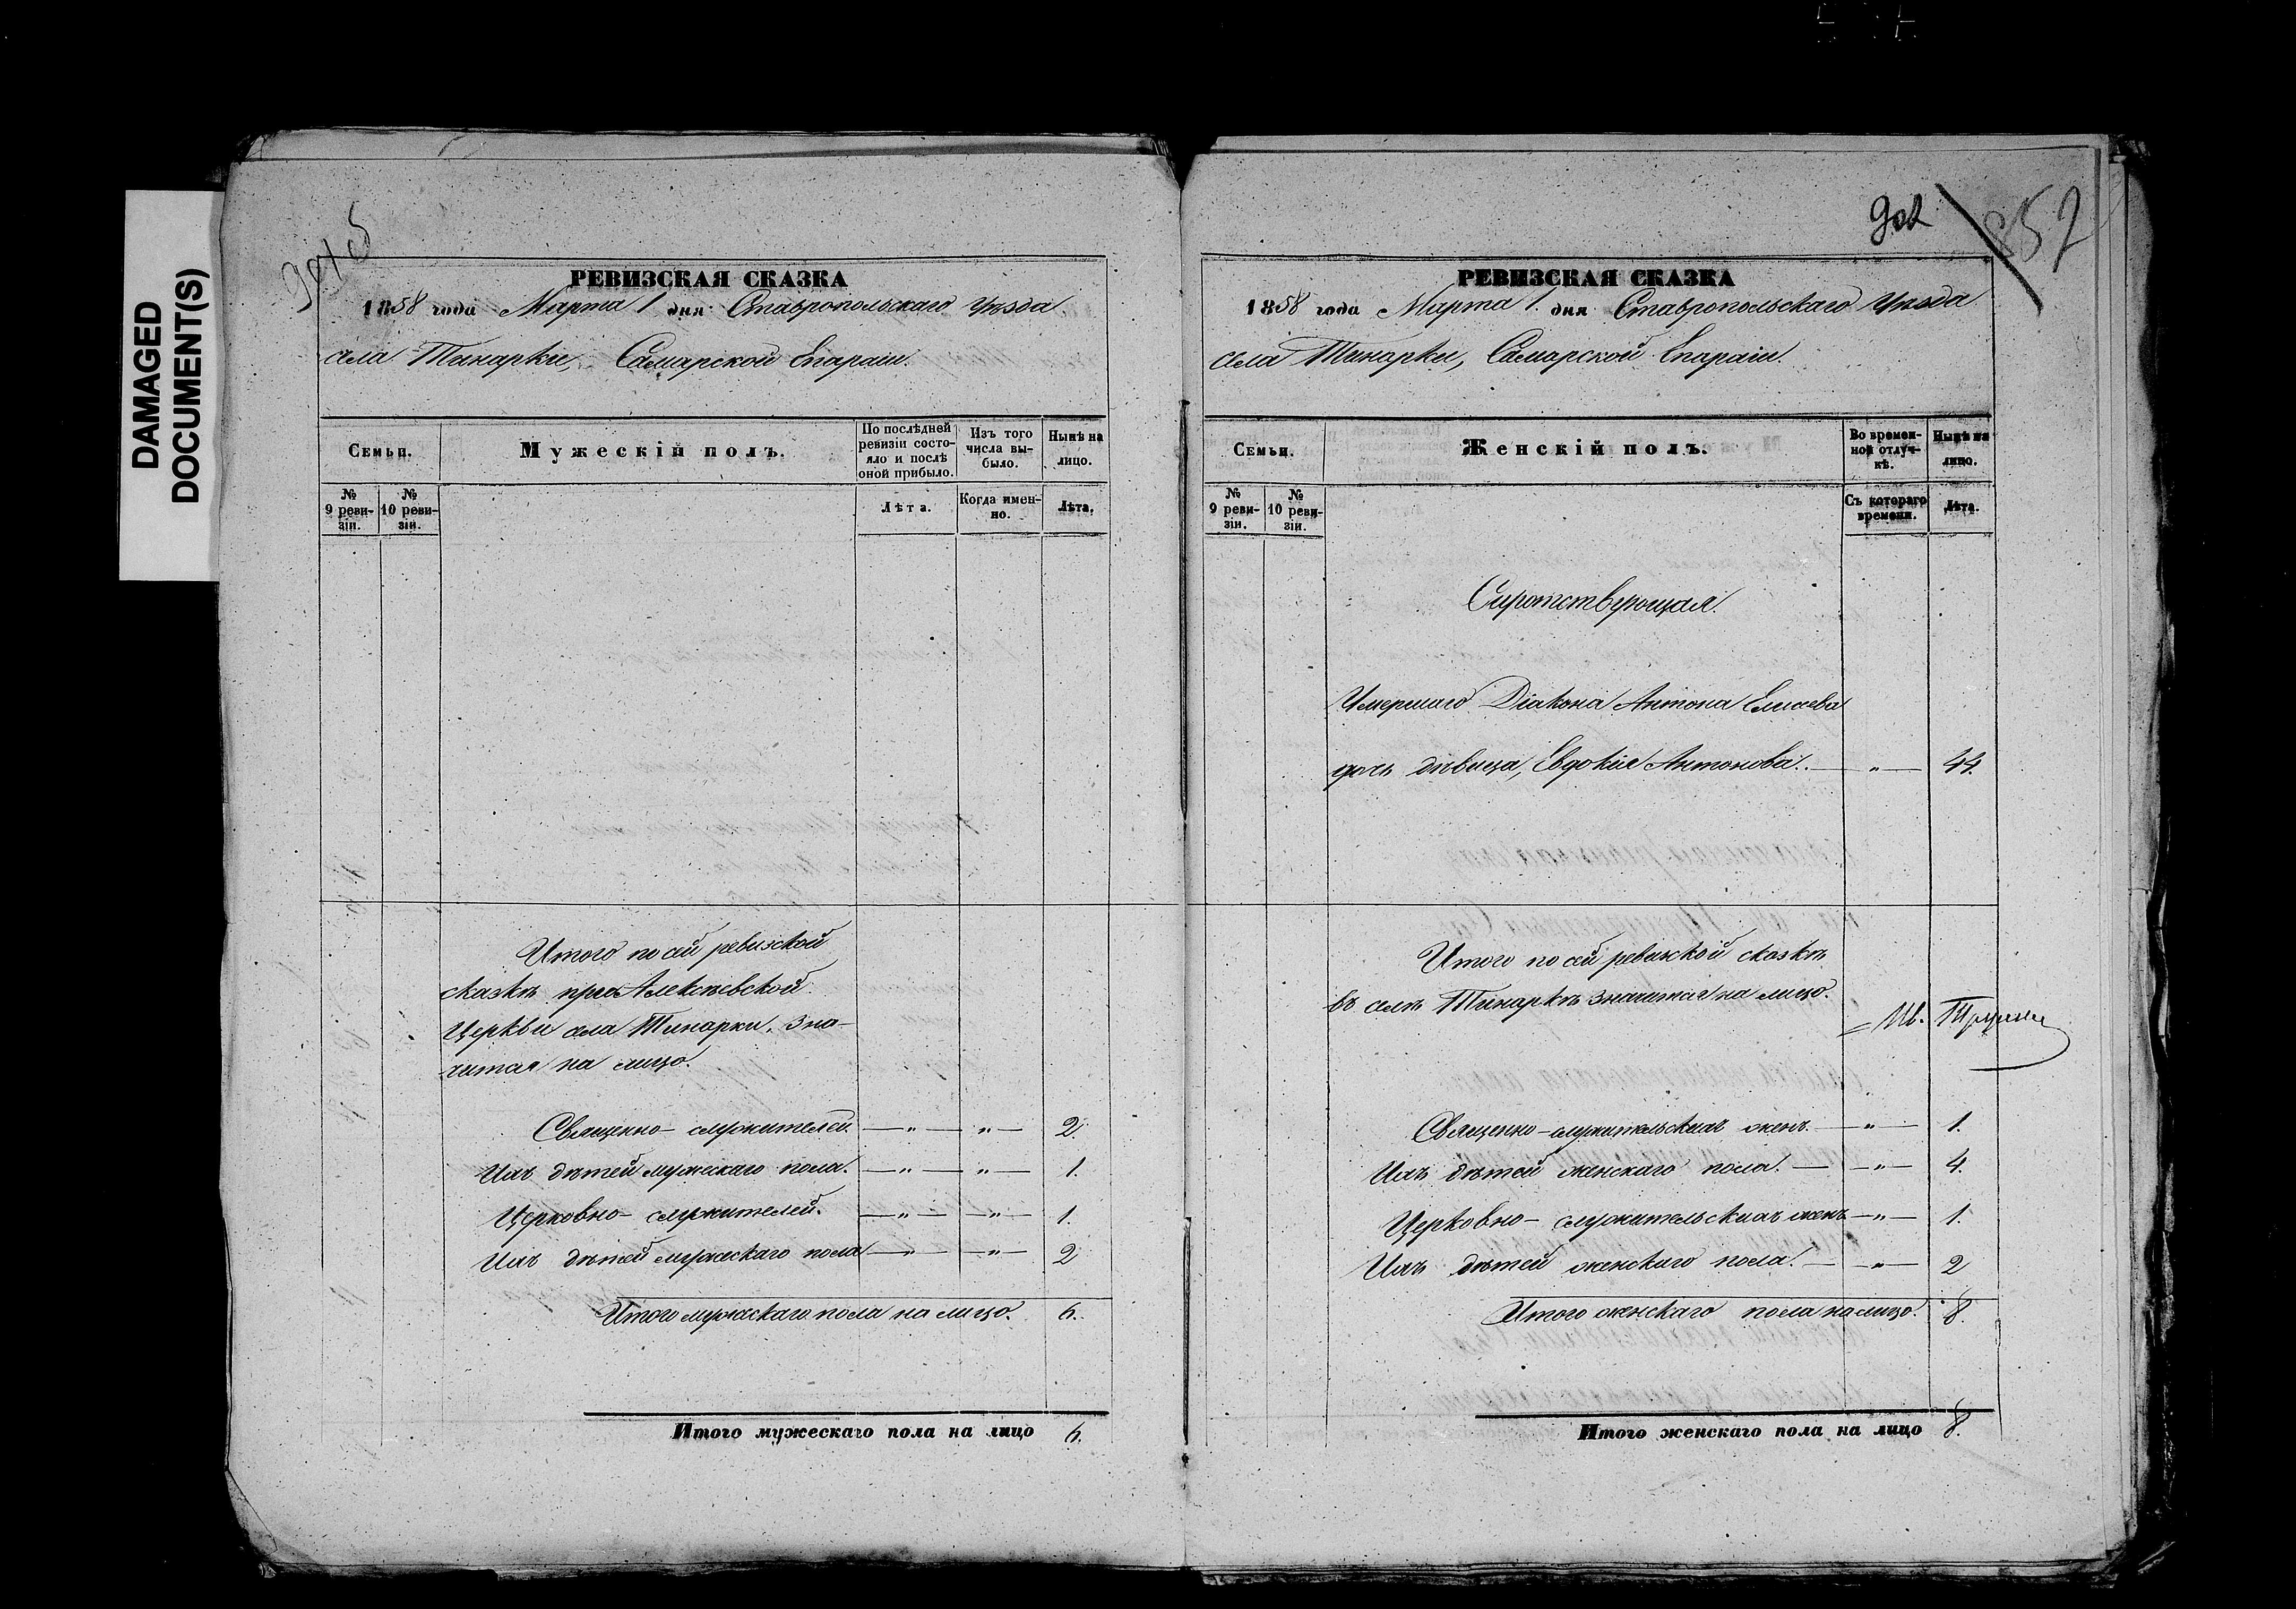 DAMAGED
DOCUMENT(S)
РЕВИЗСКАЯ СКАЗКА
1858 года Марта 1 дня Ставропольскаго Уѣзда
села Тинарки, Самарской Епархіи.
Семьи.
Мужескій полъ.
По послѣдней ревизіи состо-
яло и послѣ оной прибыло.
Изъ того числа вы-
было.
Нынѣ на лицо.
№ 9 реви-
зіи.
№ 10 реви-
зіи.
Лѣта.
Когда имен-
но.
Лѣта.
Итого по сей ревизской
сказкѣ при Алексѣевской
Церкви села Тинарки, зна-
чится на лицо.
Священно-служителей. — „ — „ — 2.
Ихъ дѣтей мужескаго пола. — „ — „ — 1.
Церковно-служителей. — „ — „ — 1.
Ихъ дѣтей мужескаго пола — „ — „ — 2
Итого мужескаго пола на лицо. 6.
Итого мужескаго пола на лицо 6.
902
852
РЕВИЗСКАЯ СКАЗКА
1858 года Марта 1. дня Ставропольскаго Уѣзда
села Тинарки, Самарской Епархіи.
Семьи.
Женскій полъ.
Во времен-
ной отлуч-
кѣ.
Нынѣ на лицо.
№ 9 реви-
зіи.
№ 10 реви-
зіи.
Съ котораго времени.
Лѣта.
Сиротствующая.
Умершаго Діакона Антона Елисеева
дочь дѣвица, Евдокія Антонова. — „ — 44.
Итого по сей ревизской сказкѣ
въ селѣ Тинаркѣ значится на лицо.
Священно-служительскихъ женъ. — „ — 1.
Ихъ дѣтей женскаго пола. — „ — 4.
Церковно-служительскихъ женъ — „ — 1.
Ихъ дѣтей женскаго пола. — „ — 2
Итого женскаго пола на лицо. 8.
Итого женскаго пола на лицо 8.